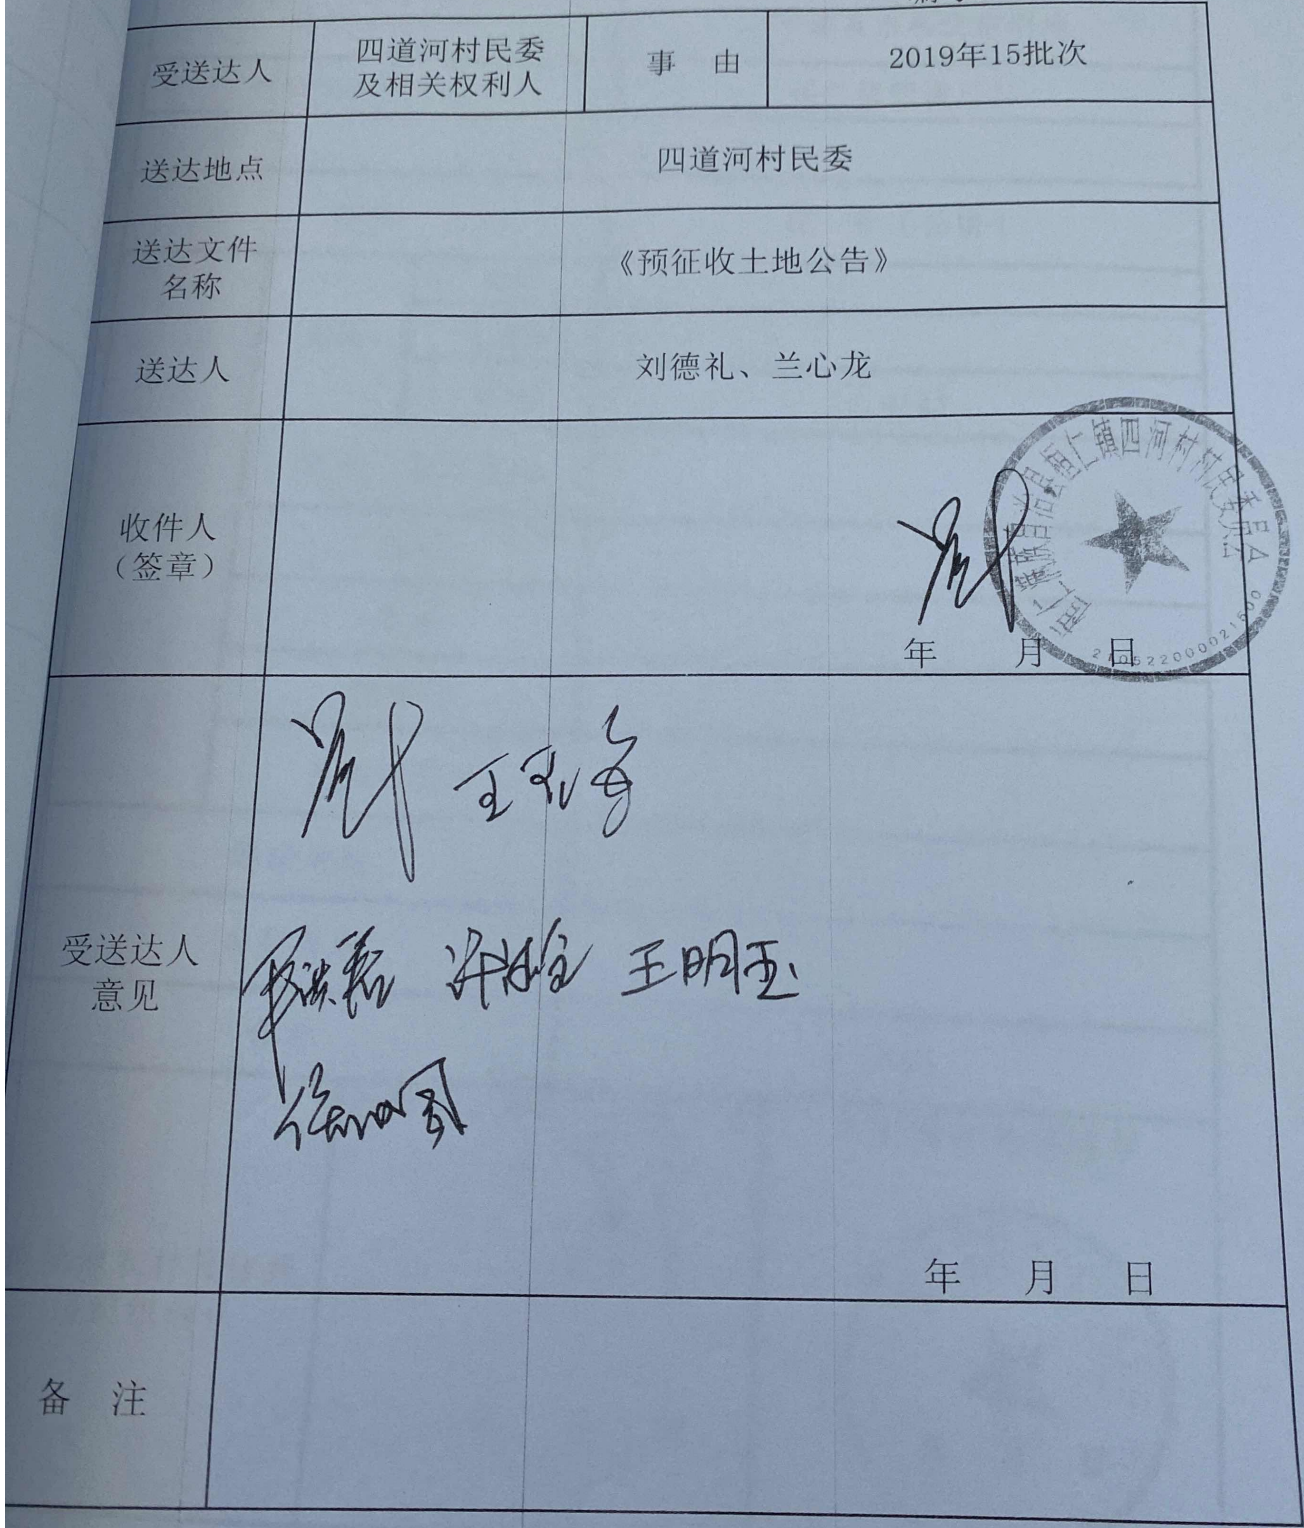 受送达人
四道河村民委
及相关权利人
事 由
2019年15批次
送达地点
四道河村民委
送达文件
名称
《预征收土地公告》
送达人
刘德礼、兰心龙
收件人
(签章)
桓仁满族自治县桓仁镇四河村村民委员会
210522000021500
年 月 日
受送达人
意见
王明玉
年 月 日
备 注